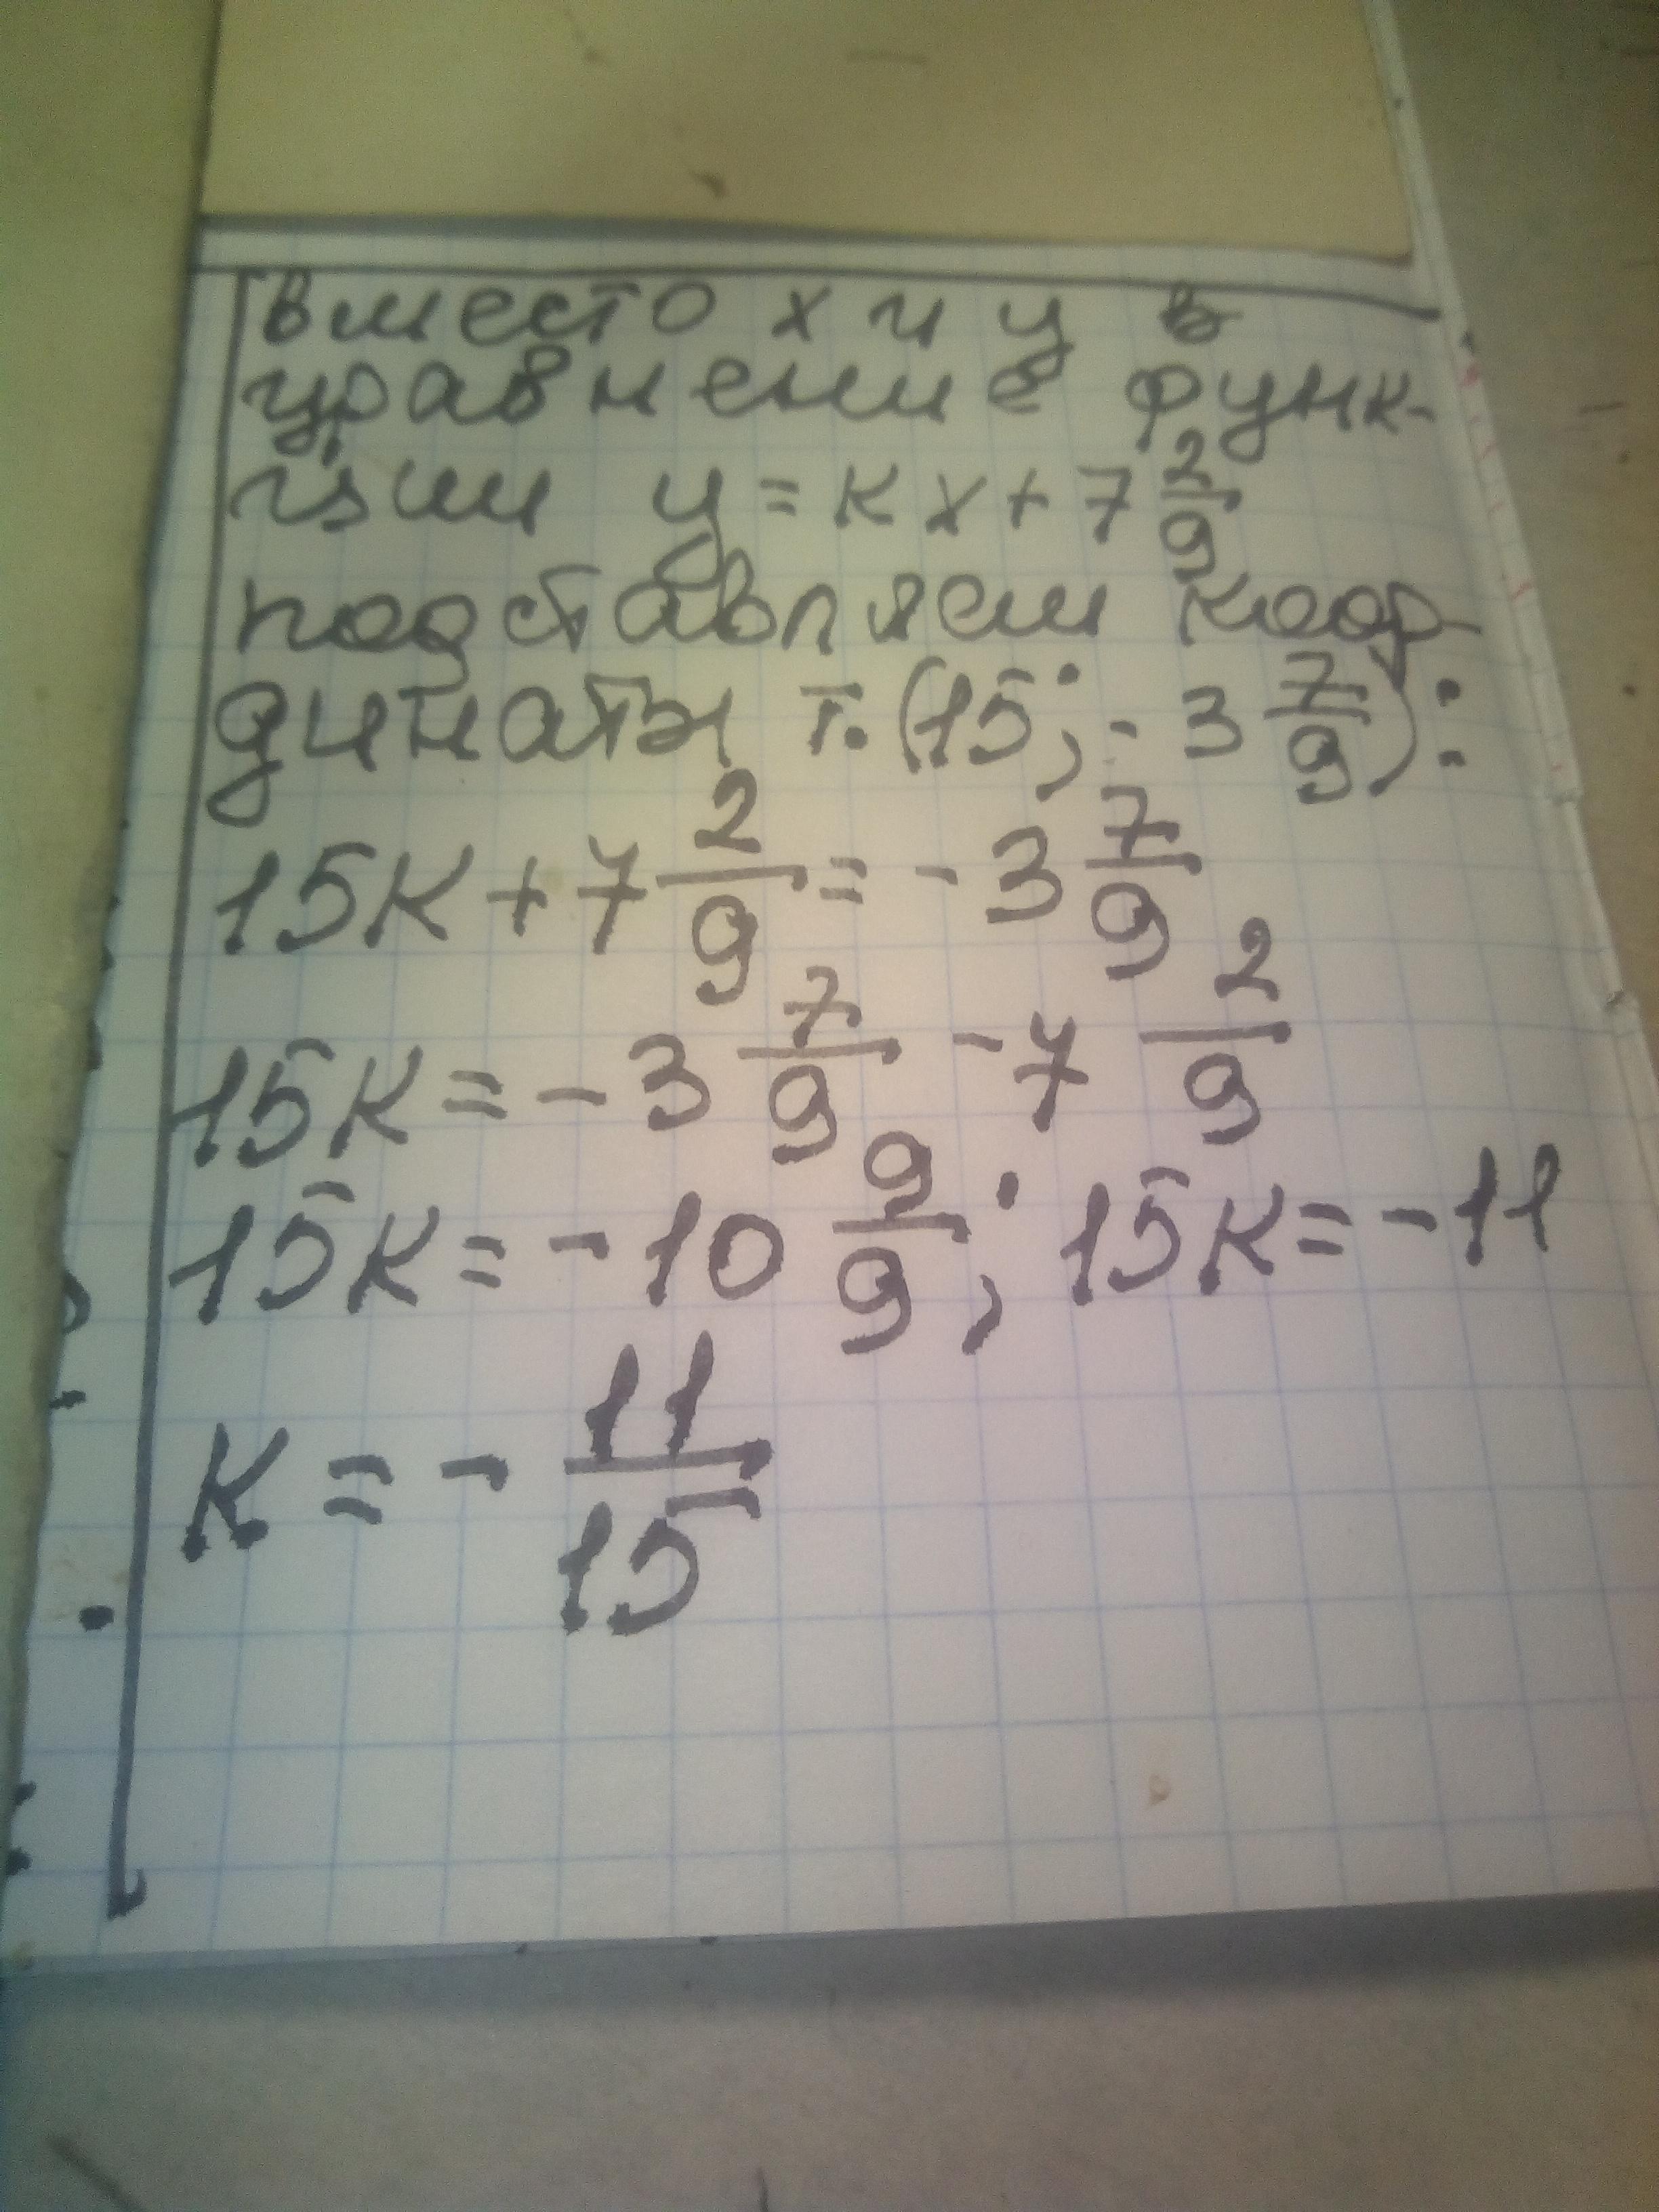 вместо x и y в
уравнение функ-
ции y = kx + 7 2/9
подставляем коор-
динаты т. (15; - 3 7/9):
15k + 7 2/9 = - 3 7/9
15k = - 3 7/9 - 7 2/9
15k = - 10 9/9; 15k = - 11
k = - 11/15